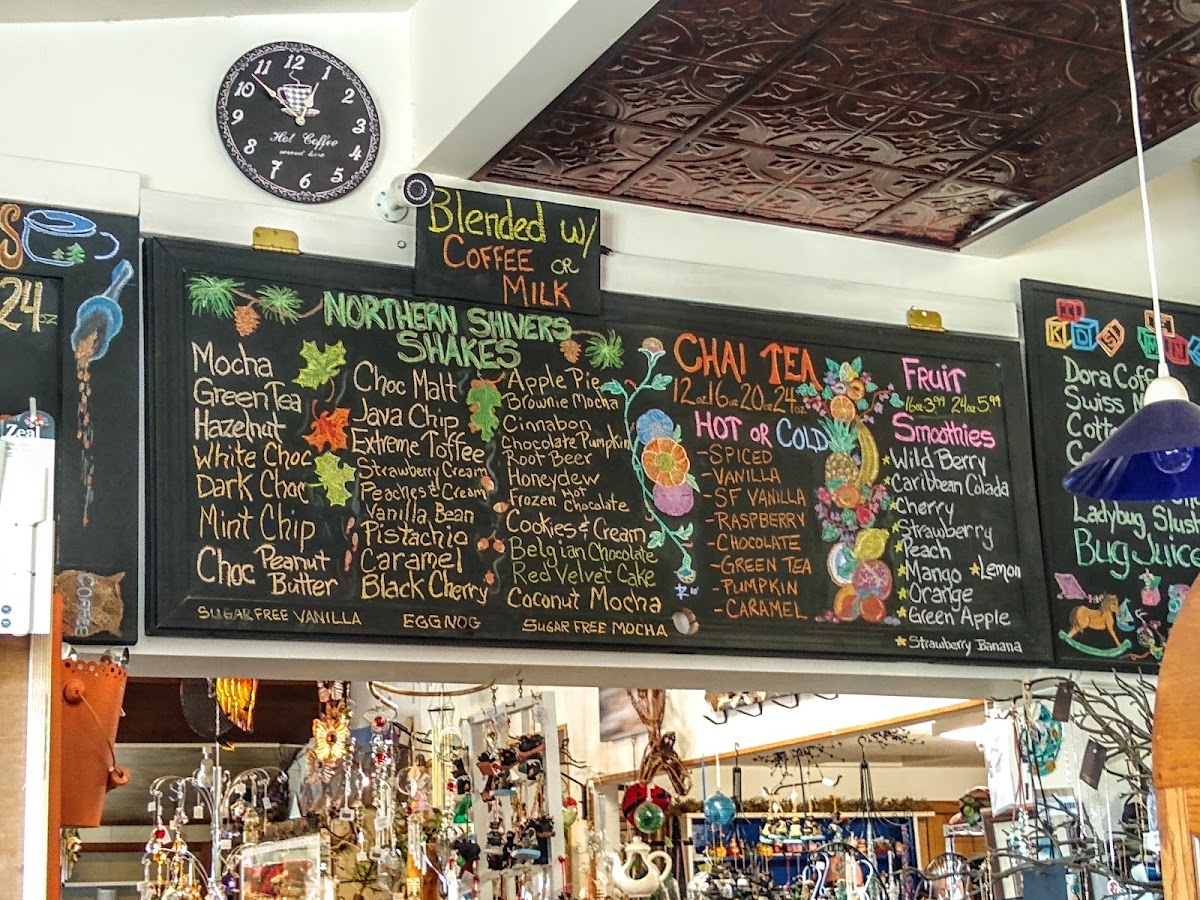 11 12 1
10 2
9 3
8 4
7 6 5
Hot Coffee
served here
Blended w/
COFFEE OR
MILK
S
24 oz
Zeal
COFFEE
NORTHERN SHIVERS
SHAKES
Mocha
Green Tea
Hazelnut
White Choc
Dark Choc
Mint Chip
Choc Peanut
Butter
Choc Malt
Java Chip
Extreme Toffee
Strawberry Cream
Peaches & Cream
Vanilla Bean
Pistachio
Caramel
Black Cherry
Apple Pie
Brownie Mocha
Cinnabon
Chocolate Pumpkin
Root Beer
Honeydew
Frozen Hot
Chocolate
Cookies & Cream
Belgian Chocolate
Red Velvet Cake
Coconut Mocha
SUGAR FREE VANILLA
EGGNOG
SUGAR FREE MOCHA
CHAI TEA
12oz 16oz 20oz 24oz
HOT OR COLD
-SPICED
-VANILLA
-SF VANILLA
-RASPBERRY
-CHOCOLATE
-GREEN TEA
-PUMPKIN
-CARAMEL
FRUIT
16oz 3.99 24oz 5.99
Smoothies
Wild Berry
Caribbean Colada
Cherry
Strawberry
Peach
Mango
Lemon
Orange
Green Apple
Strawberry Banana
KIDS
Dora
Swiss
Ladybug
Bug Juice